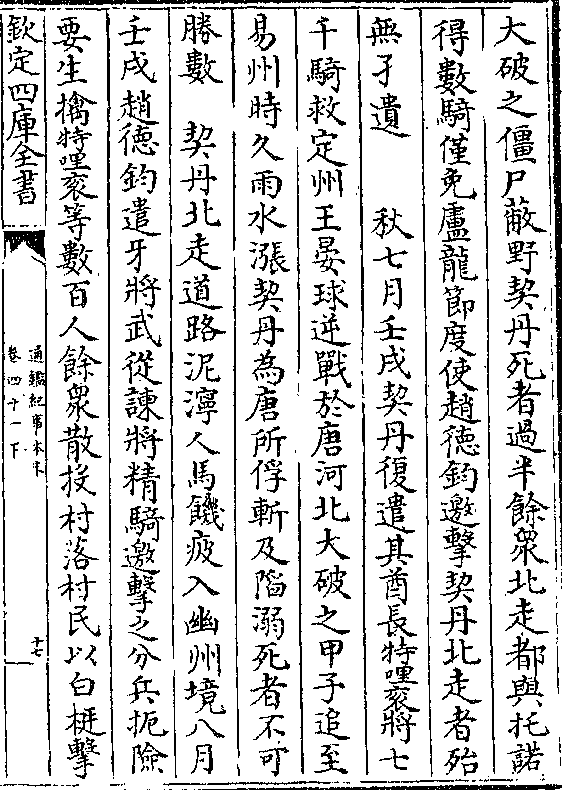 大破之僵尸蔽野契丹死者過半餘衆北走都與托諾
得數騎僅免盧龍節度使趙德鈞邀擊契丹北走者殆
無孑遺　秋七月壬戌契丹復遣其酋長特哩衮將七
千騎救定州王晏球逆戰於唐河北大破之甲子追至
易州時久雨水漲契丹為唐所俘斬及陷溺死者不可
勝數　契丹北走道路泥濘人馬饑疲入幽州境八月
壬戌趙德鈞遣牙將武從諫將精騎邀擊之分兵扼險
要生擒特哩衮等數百人餘衆散投村落村民以白梃擊
欽定四庫全書
通鑑紀事本末
卷四十一下
十七